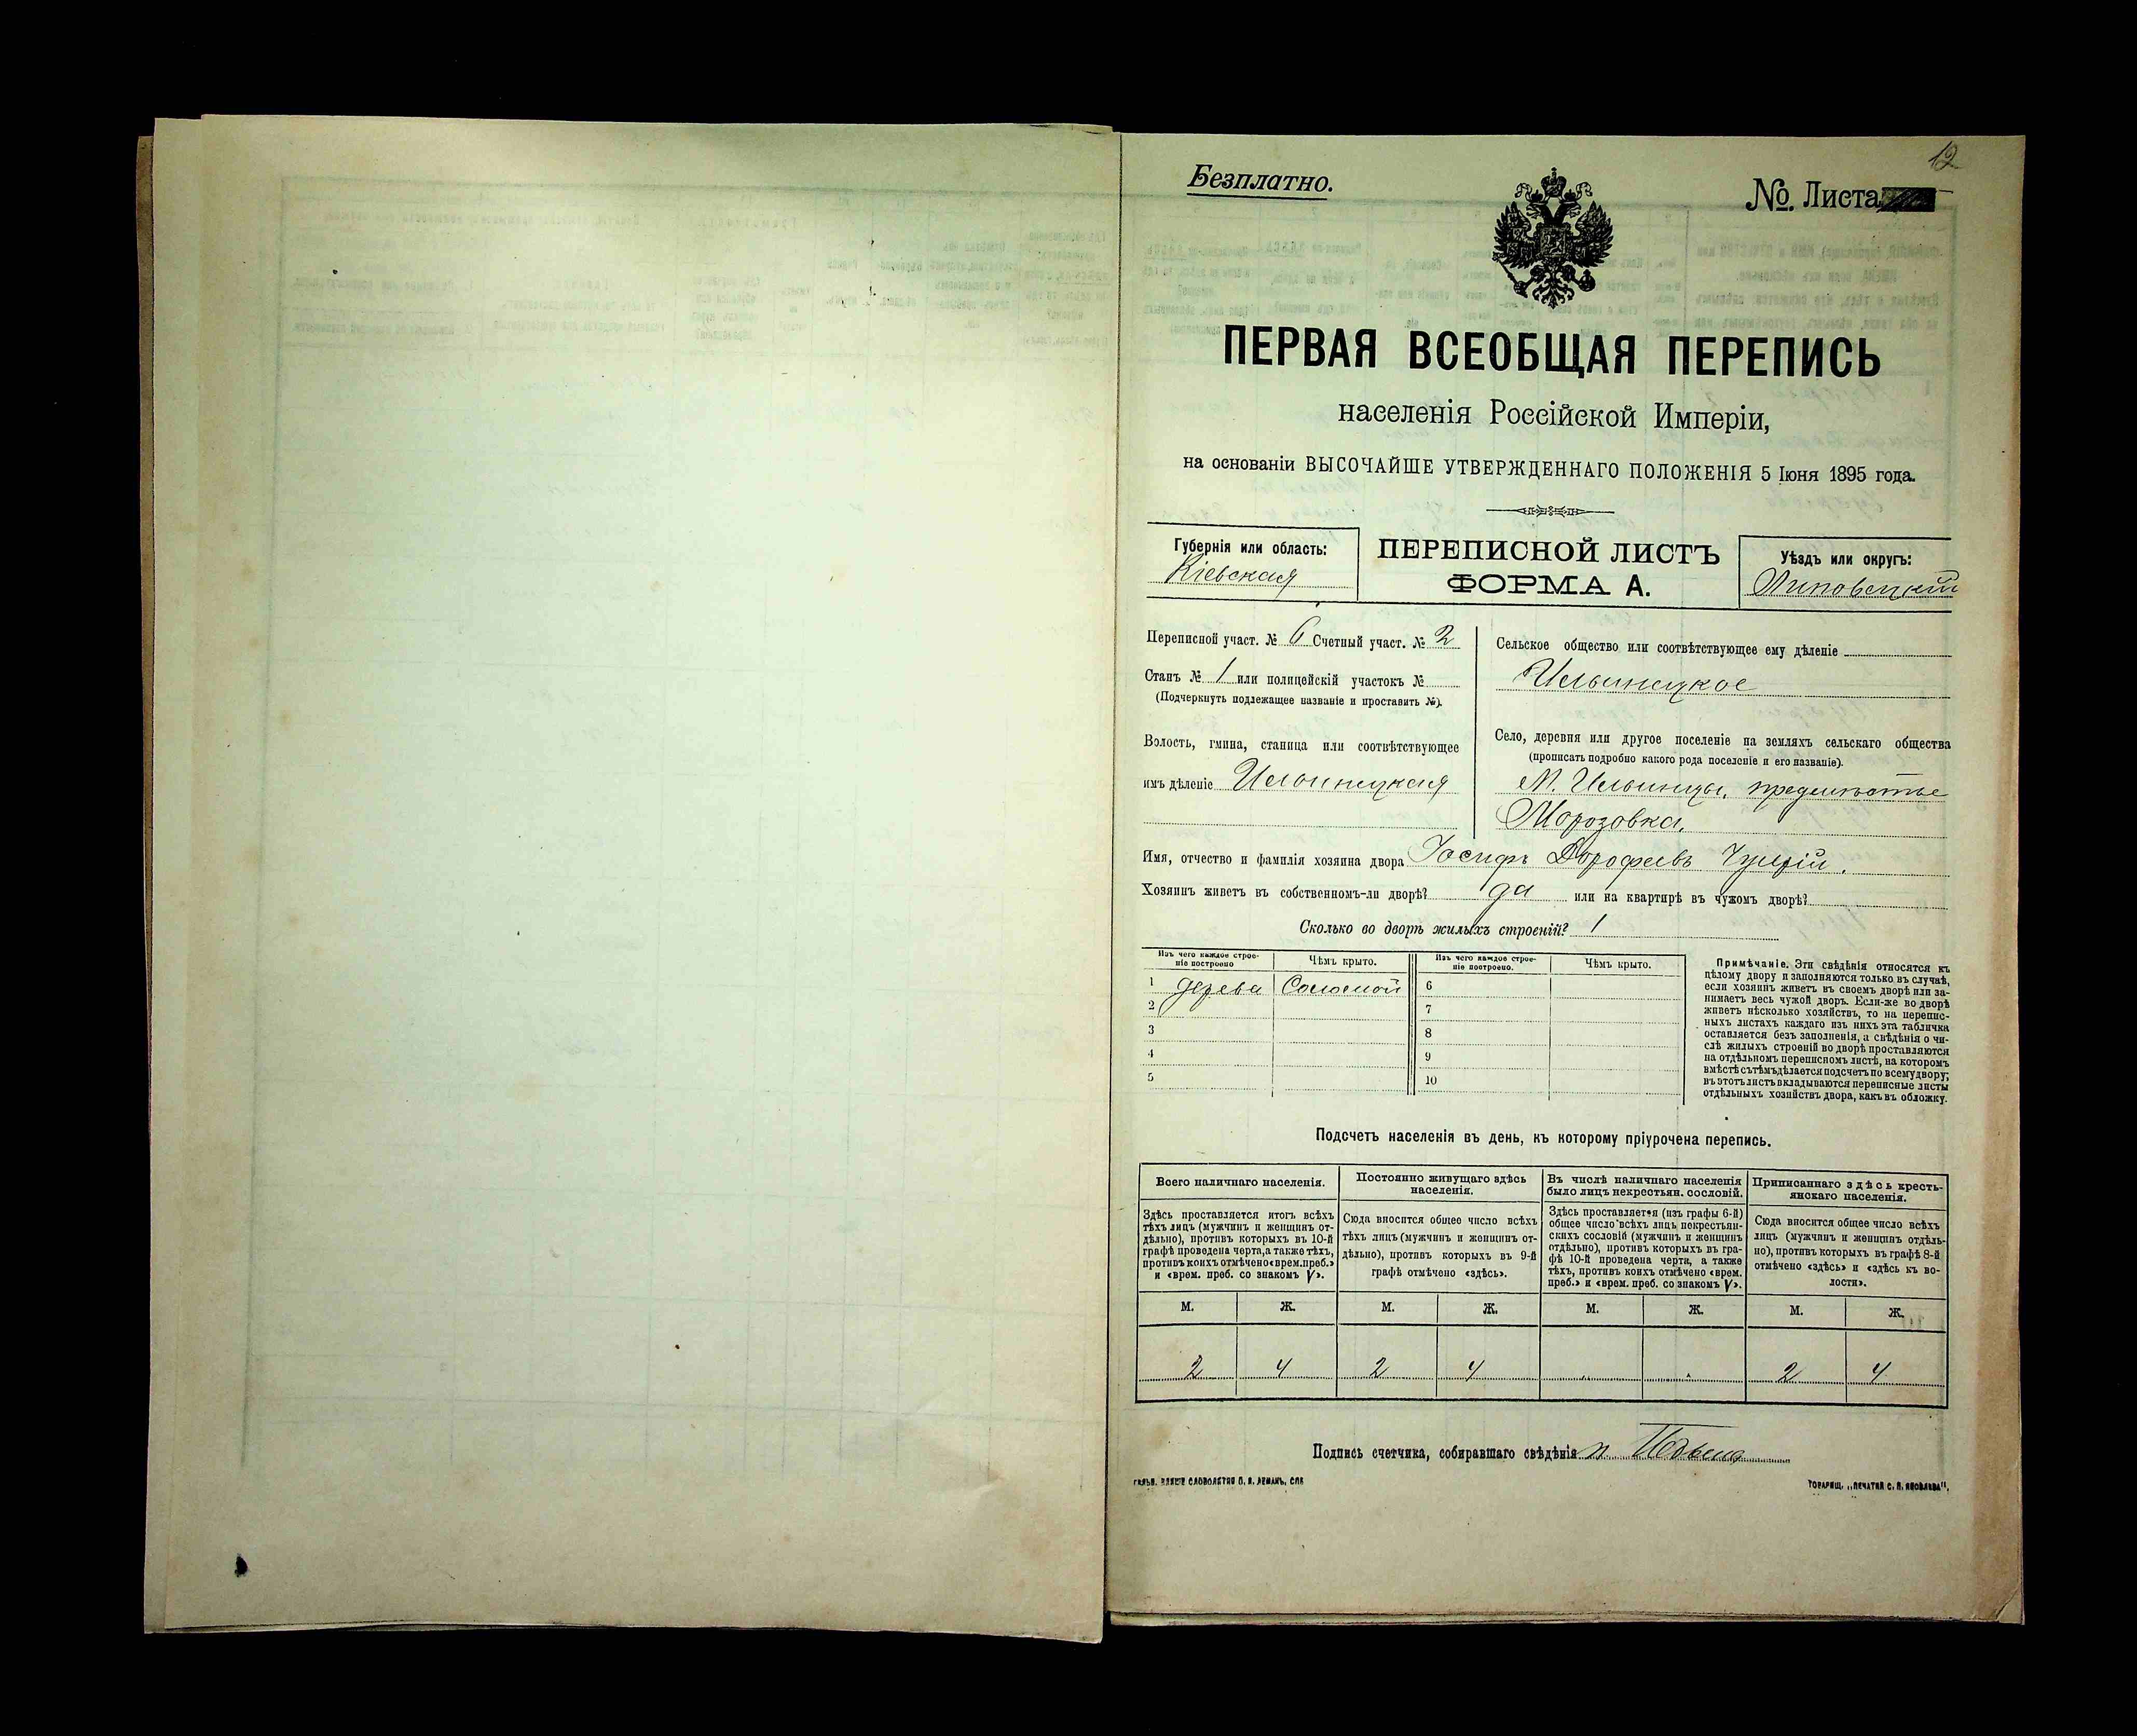 12
Безплатно.
№. Листа
ПЕРВАЯ ВСЕОБЩАЯ ПЕРЕПИСЬ
населенія Россійской Имперіи,
на основаніи ВЫСОЧАЙШЕ УТВЕРЖДЕННАГО ПОЛОЖЕНІЯ 5 Іюня 1895 года.
Губернія или область:
Кіевская
ПЕРЕПИСНОЙ ЛИСТЪ
ФОРМА А.
Уѣздъ или округъ:
Липовецкій
Переписной участ. № 6 Счетный участ. № 2
Станъ № 1 или полицейскій участокъ №
(Подчеркнуть подлежащее названіе и проставить №).
Волость, гмина, станица или соотвѣтствующее
имъ дѣленіе Ильинецкая
Сельское общество или соотвѣтствующее ему дѣленіе
Ильинецкое
Село, деревня или другое поселеніе на земляхъ сельскаго общества
(прописать подробно какого рода поселеніе и его названіе).
М. Ильинцы, предмѣстье
Морозовка.
Имя, отчество и фамилія хозяина двора Іосифъ Дорофеевъ
Хозяинъ живетъ въ собственномъ-ли дворѣ? да или на квартирѣ въ чужомъ дворѣ?
Сколько во дворѣ жилыхъ строеній? 1
Изъ чего каждое строе-
ніе построено
Чѣмъ крыто.
Изъ чего каждое строе-
ніе построено.
Чѣмъ крыто.
1 дерева Соломой 6
2 7
3 8
4 9
5 10
Примѣчаніе. Эти свѣдѣнія относятся къ
цѣлому двору и заполняются только въ случаѣ,
если хозяинъ живетъ въ своемъ дворѣ или за-
нимаетъ весь чужой дворъ. Если-же во дворѣ
живетъ нѣсколько хозяйствъ, то на перепис-
ныхъ листахъ каждаго изъ нихъ эта табличка
оставляется безъ заполненія, а свѣдѣнія о чи-
слѣ жилыхъ строеній во дворѣ проставляются
на отдѣльномъ переписномъ листѣ, на которомъ
вмѣстѣ съ тѣмъ дѣлается подсчетъ по всему двору;
въ этотъ листъ вкладываются переписные листы
отдѣльныхъ хозяйствъ двора, какъ въ обложку.
Подсчетъ населенія въ день, къ которому пріурочена перепись.
Всего наличнаго населенія.
Здѣсь проставляется итогъ всѣхъ
тѣхъ лицъ (мужчинъ и женщинъ от-
дѣльно), противъ которыхъ въ 10-й
графѣ проведена черта, а также тѣхъ,
противъ коихъ отмѣчено «врем. преб.»
и «врем. преб. со знакомъ V».
Постоянно живущаго здѣсь
населенія.
Сюда вносится общее число всѣхъ
тѣхъ лицъ (мужчинъ и женщинъ от-
дѣльно), противъ которыхъ въ 9-й
графѣ отмѣчено «здѣсь».
Въ числѣ наличнаго населенія
было лицъ некрестьян. сословій.
Здѣсь проставляется (изъ графы 6-й)
общее число всѣхъ лицъ некрестьян-
скихъ сословій (мужчинъ и женщинъ
отдѣльно), противъ которыхъ въ гра-
фѣ 10-й проведена черта, а также
тѣхъ, противъ коихъ отмѣчено «врем.
преб.» и «врем. преб. со знакомъ V».
Приписаннаго здѣсь кресть-
янскаго населенія.
Сюда вносится общее число всѣхъ
лицъ (мужчинъ и женщинъ отдѣль-
но), противъ которыхъ въ графѣ 8-й
отмѣчено «здѣсь» и «здѣсь къ во-
лости».
М. Ж. М. Ж. М. Ж. М. Ж.
2 4 2 4 2 4
Подпись счетчика, собиравшаго свѣдѣнія
СЛОВОЛИТНЯ О. И. ЛЕМАНЪ, СПБ
ТОВАРИЩ. „ПЕЧАТНЯ С. П. ЯКОВЛЕВА".